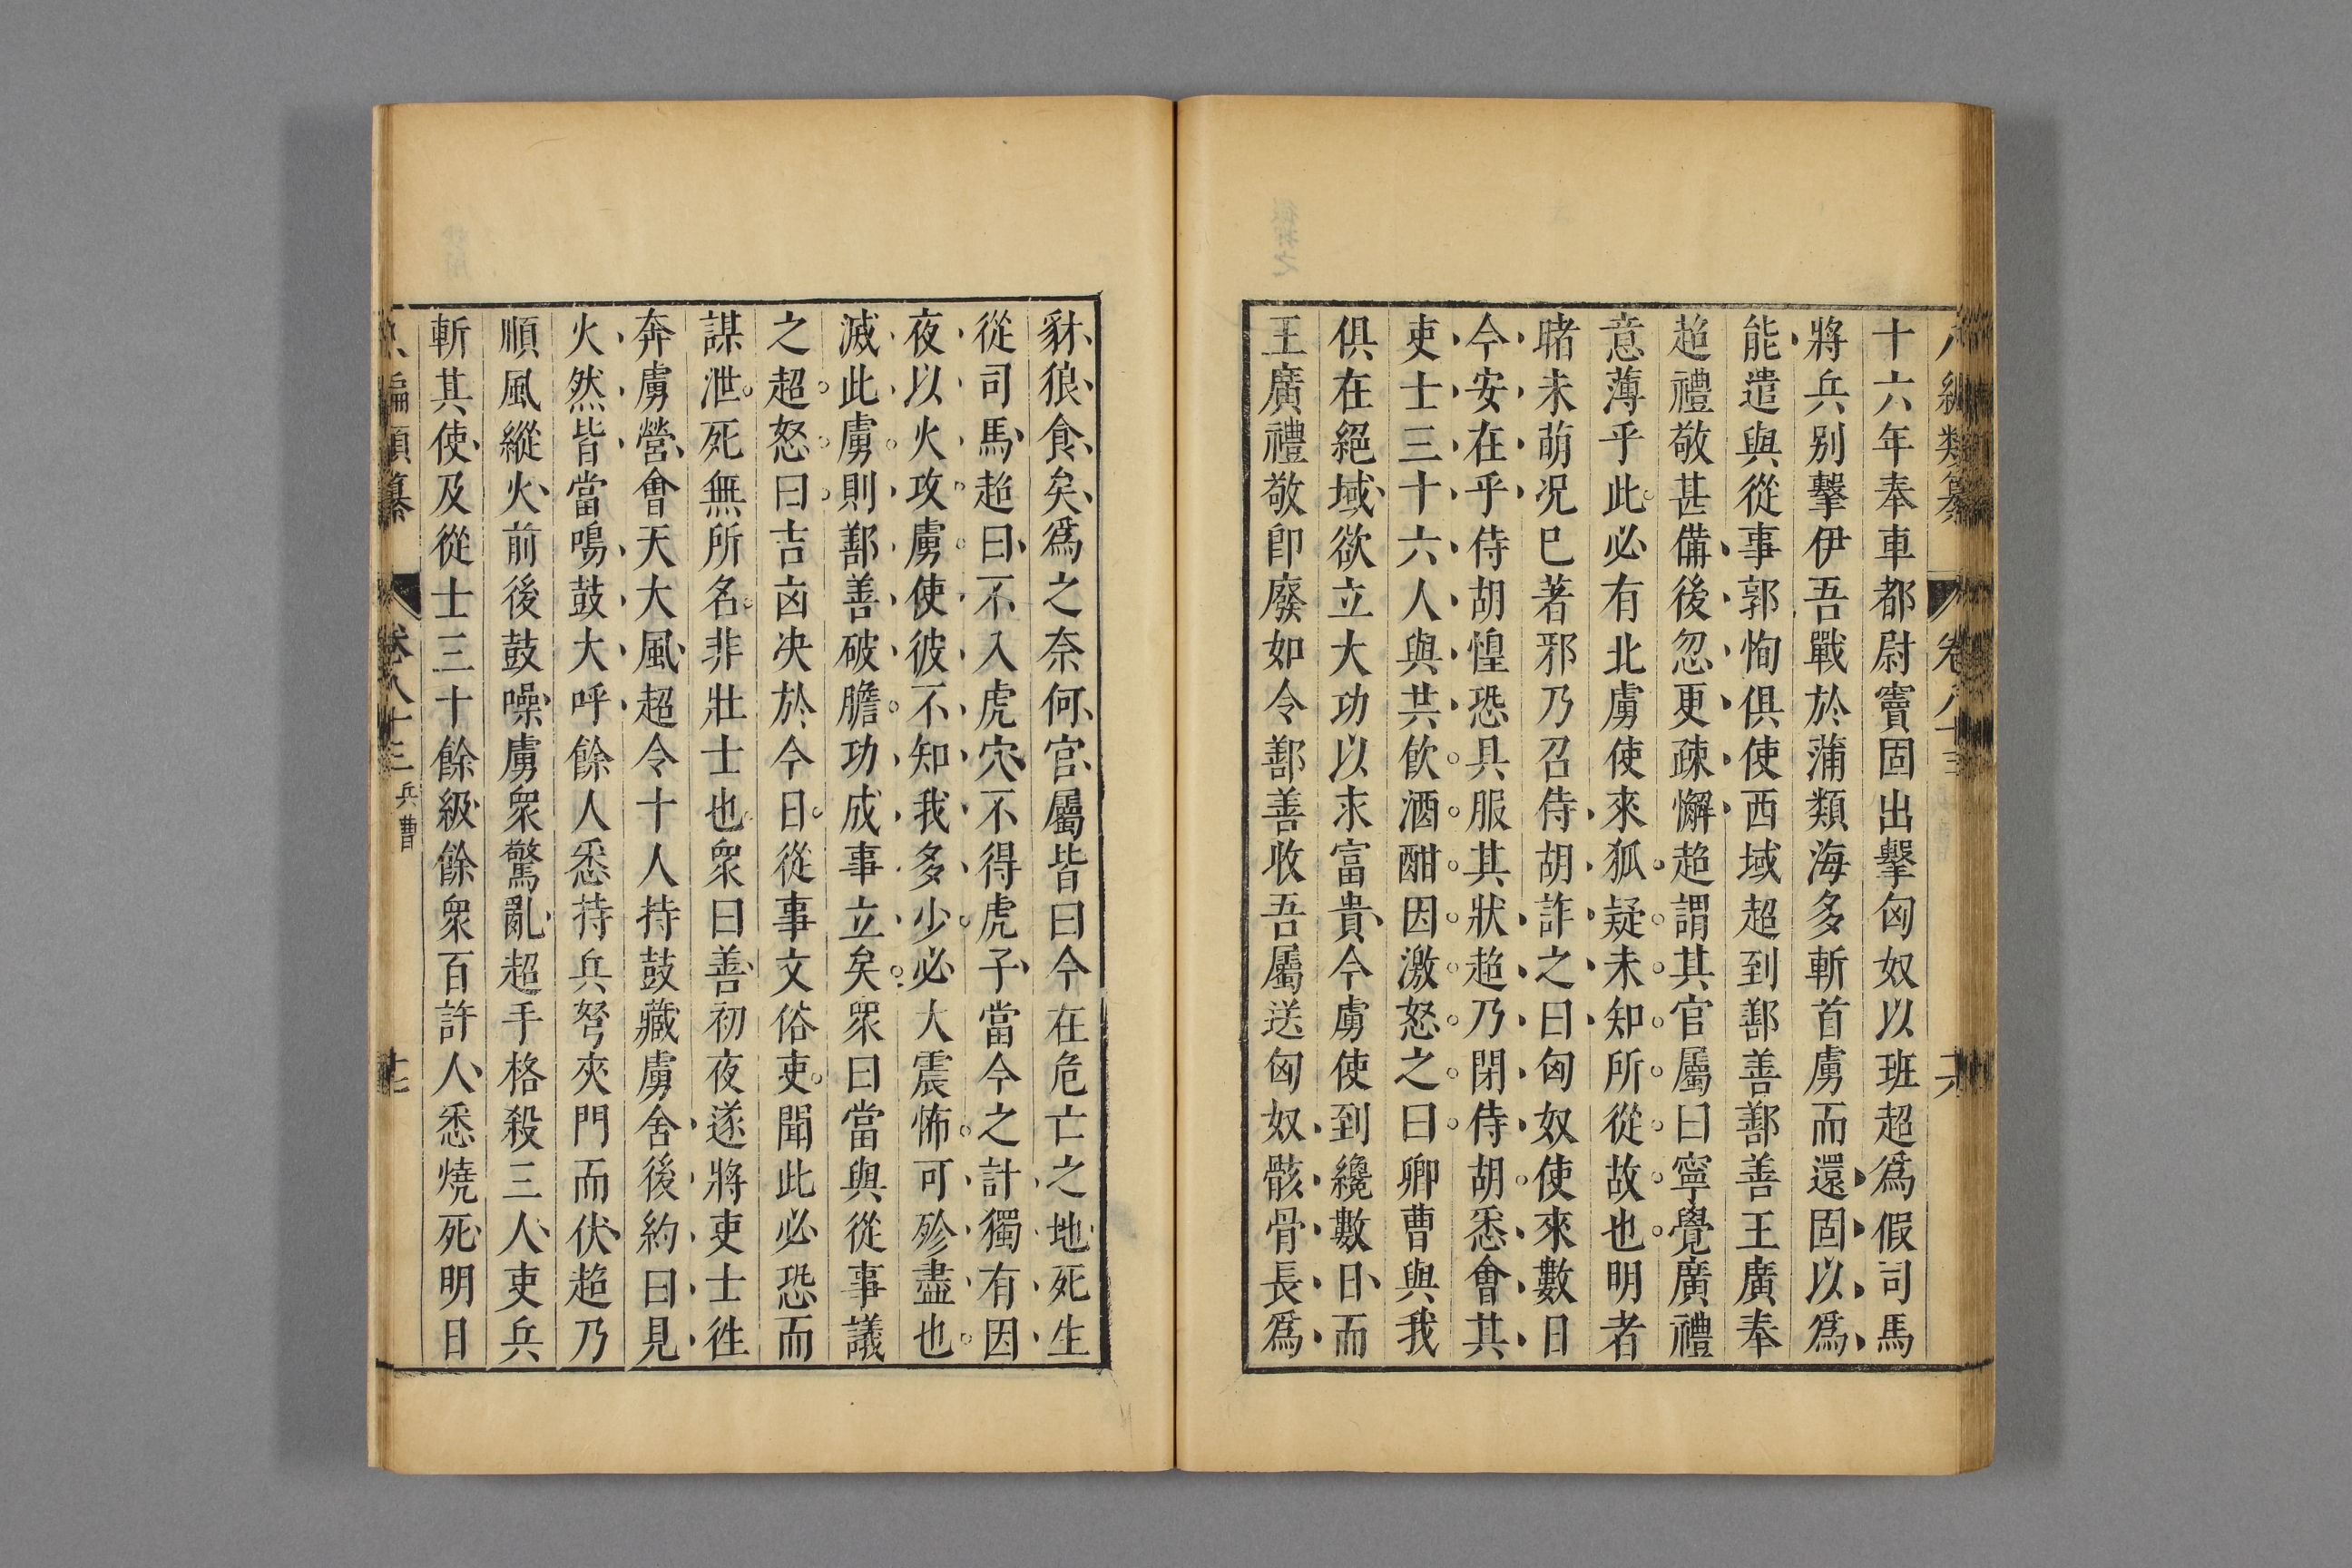 八編類纂 卷八十三 十六
十六年奉車都尉竇固出擊匈奴以班超爲假司馬
將兵别擊伊吾戰於蒲類海多斬首虜而還固以爲
能遣與從事郭恂俱使西域超到鄯善鄯善王廣奉
超禮敬甚備後忽更疎懈超謂其官屬曰寧覺廣禮
意薄乎此必有北虜使來狐疑未知所從故也明者
睹未萌况巳著邪乃召侍胡詐之曰匈奴使來數日
今安在乎侍胡惶恐具服其狀超乃閉侍胡悉會其
吏士三十六人與共飲酒酣因激怒之曰卿曹與我
俱在絕域欲立大功以求富貴今虜使到纔數日而
王廣禮敬即廢如令鄯善收吾屬送匈奴骸骨長爲
豺狼食矣爲之奈何官屬皆曰今在危亡之地死生
從司馬超曰不入虎穴不得虎子當今之計獨有因
夜以火攻虜使彼不知我多少必大震怖可殄盡也
滅此虜則鄯善破膽功成事立矣衆曰當與從事議
之超怒曰吉凶決於今日從事文俗吏聞此必恐而
謀泄死無所名非壯士也衆曰善初夜遂將吏士徃
奔虜營會天大風超令十人持鼓藏虜舍後約曰見
火然皆當鳴鼓大呼餘人悉持兵弩夾門而伏超乃
順風縱火前後鼓噪虜衆驚亂超手格殺三人吏兵
斬其使及從士三十餘級餘衆百許人悉燒死明日
編類纂 卷八十三 兵曹 十七